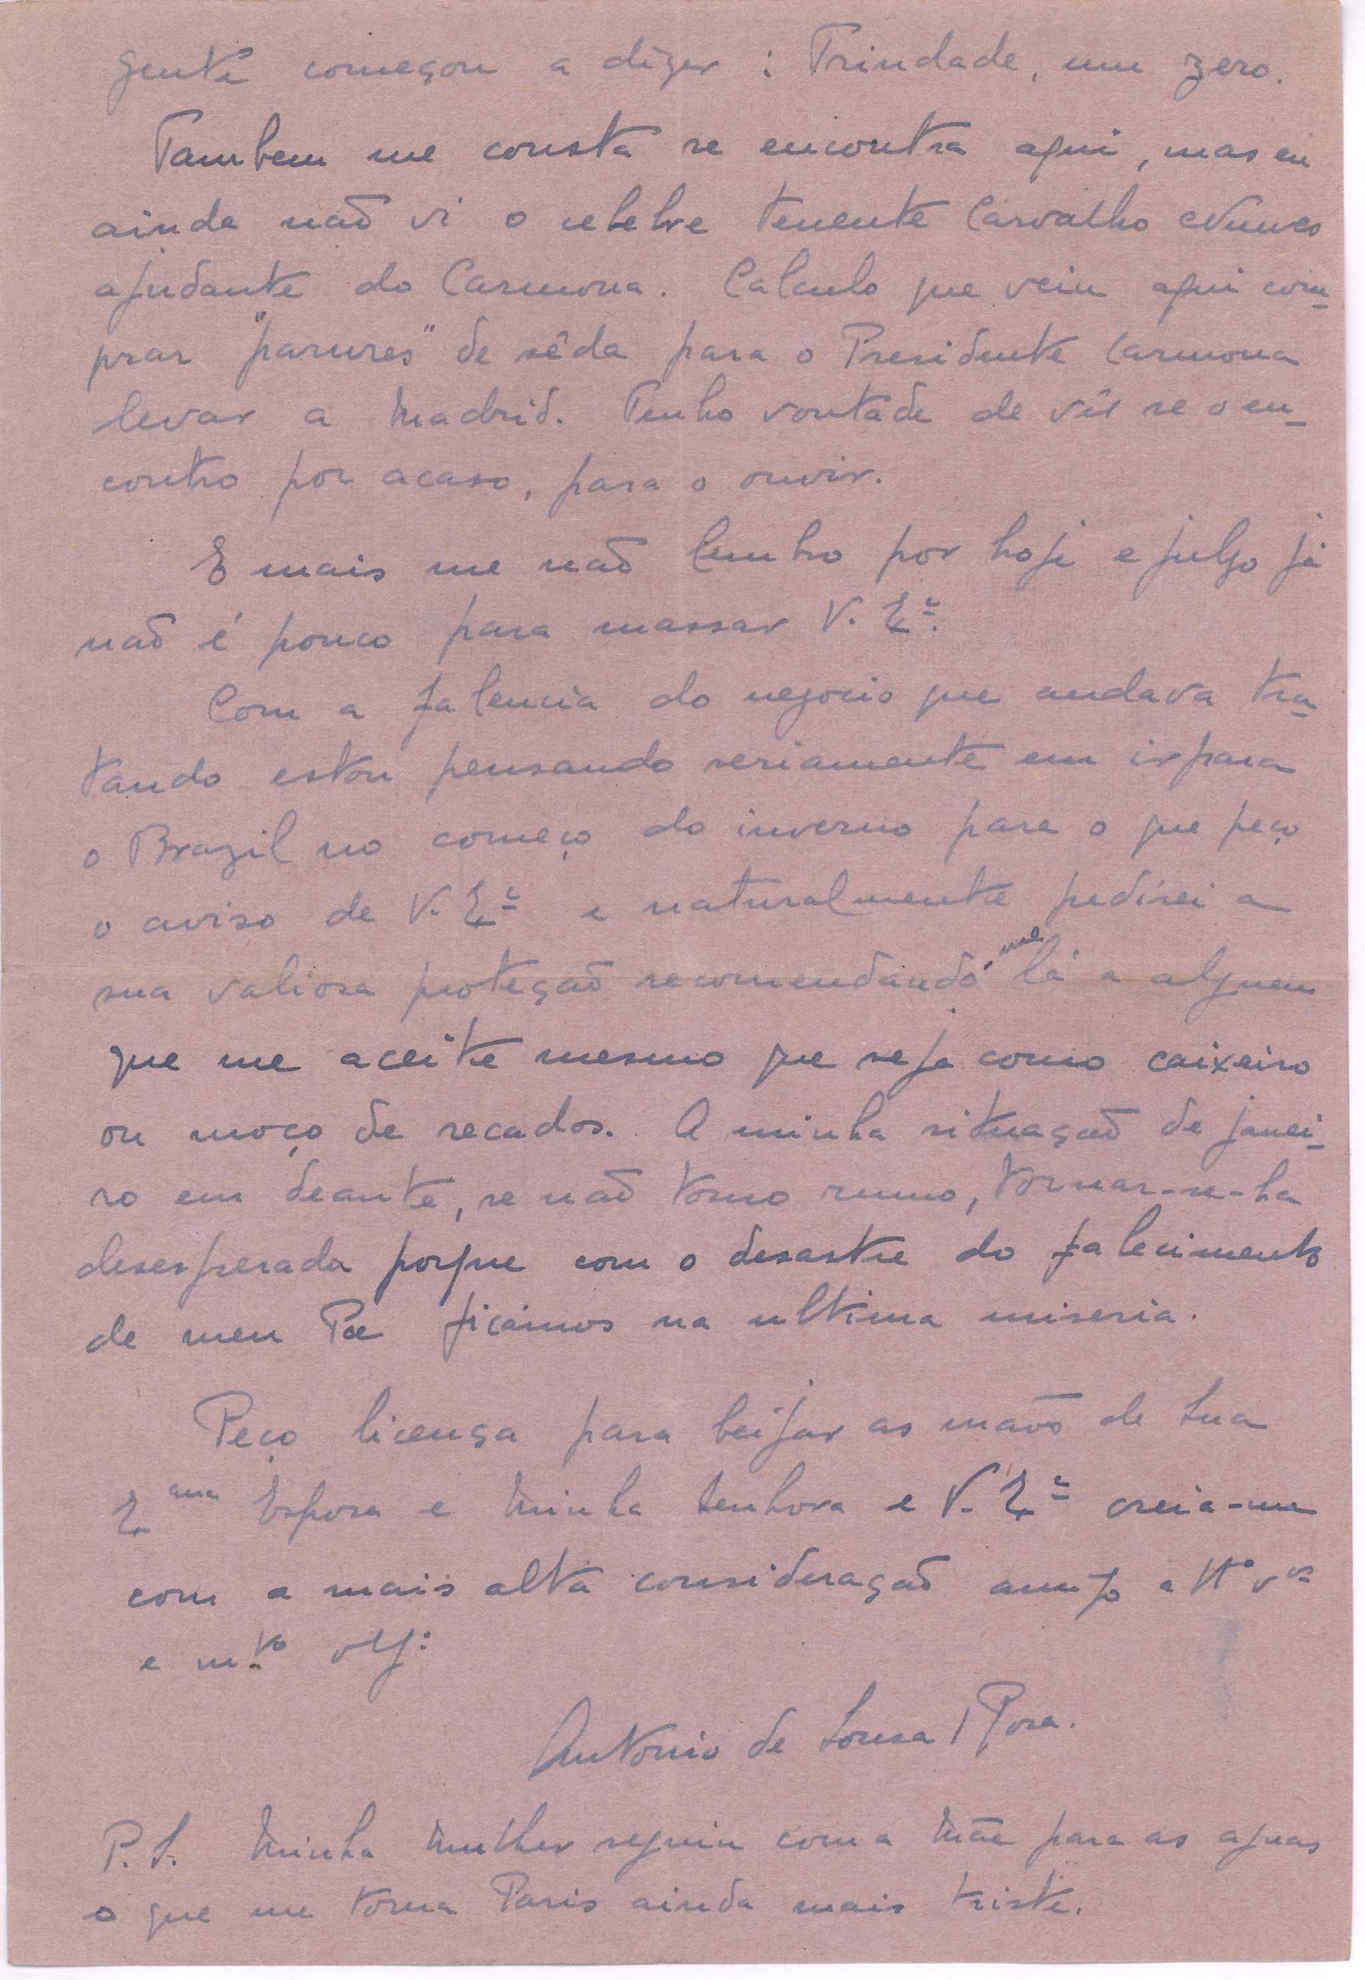 gente começou a dizer: Trindade, um zero.
Tambem me consta se encontra aqui, mas eu
ainda não vi o celebre tenente Carvalho Nunes
ajudante do Carmona. Calculo que veiu aqui com-
prar "parures" de sêda para o Presidente Carmona
levar a Madrid. Tenho vontade de vêr se o en-
contro por acaso, para o ouvir.
E mais me não lembro por hoje e julgo já
não é pouco para massar V. Exª.
Com a falencia do negocio que andava tra-
tando estou pensando seriamente em ir para
o Brazil no começo do inverno para o que peço
o aviso de V. Exª e naturalmente pedirei a
sua valiosa proteção recomendando-me lá a alguem
que me aceite mesmo que seja como caixeiro
ou moço de recados. A minha situação de janei-
ro em deante, se não tomo rumo, tornar-se-ha
desesperada porque com o desastre do falecimento
de meu Pae ficámos na ultima miseria.
Peço licença para beijar as mãos de Sua
Exma Esposa e Minha Senhora e V. Exª creia-me
com a mais alta consideração amigo
e mto
Antonio de Sousa Rosa.
P.S. Minha Mulher seguiu com a Mãe para as aguas
o que me torna Paris ainda mais triste.